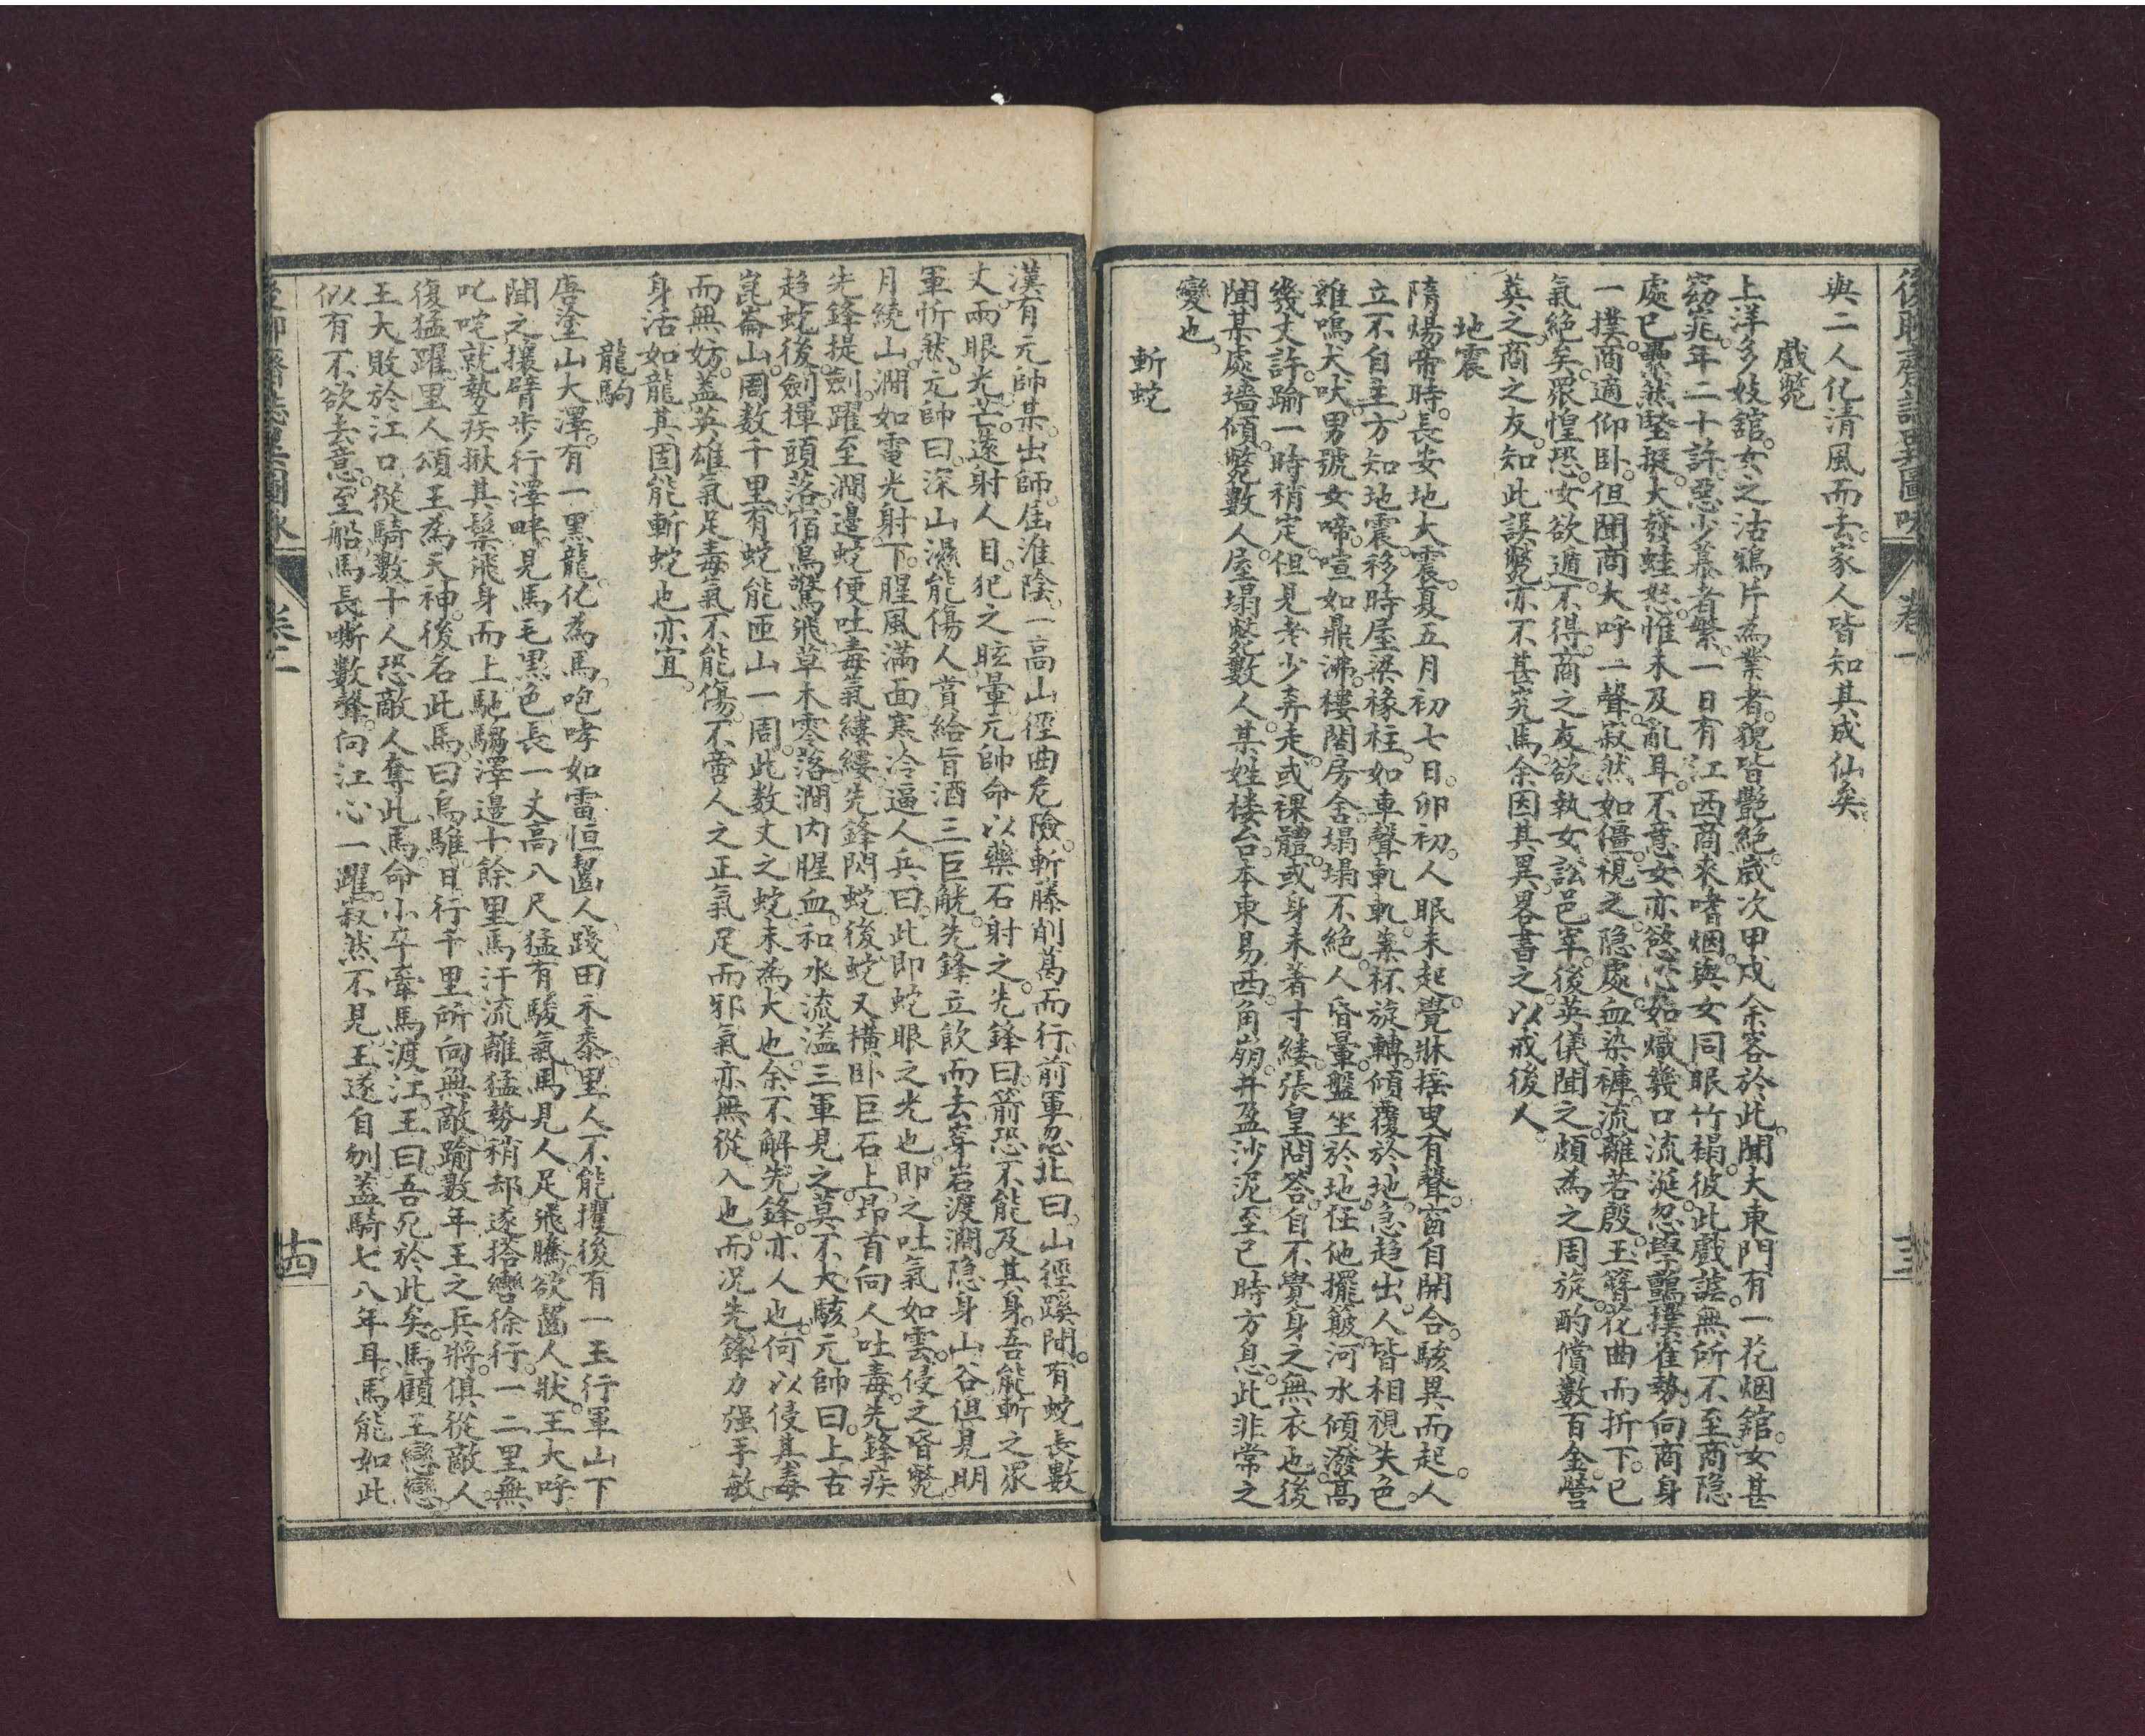 後聊齋誌異圖咏 卷一 十三
與二人化清風而去。家人皆知其成仙矣。
戲斃
上洋多妓舘。女之沽鴉片為業者。貌皆艷絕。歲次甲戌余客於此。聞大東門有一花烟舘。女甚
窈窕。年二十許。惡少慕者繁。一日有江西商來嗜烟。與女同眠竹榻。彼此戲謔。無所不至。商隐
處已纍然堅挺。大發蛙怒。惟未及亂耳。不意女亦慾心如熾。幾口流涎。忽學鸇撲雀勢。向商身
一撲。商適仰卧。但聞商大呼一聲。寂然如僵。視之。隐處血染褲。流離若殷。玉簪花曲而折下。已
氣絕矣。眾惶恐。女欲遁。不得。商之友欲執女訟邑宰。後英儀聞之。頗為之周旋。酌償數百金。營
葬之。商之友。知此誤斃。亦不甚究焉。余因其異。畧書之。以戒後人。
地震
隋煬帝時。長安地大震。夏五月初七日。卯初。人眠未起。覺牀搖曳有聲。窗自開合。駭異而起。人
立不自主。方知地震。移時屋梁椽柱。如車聲軋軋。棐杯旋轉。傾覆於地。急趋出。人皆相視失色。
雞鳴犬吠。男號女啼。喧如鼎沸。樓閣房舍。塌塌不絕。人昏暈盤坐於地。任他擺簸。河水傾潑。高
幾丈許。踰一時稍定。但見老少奔走。或裸體。或身未著寸縷。張皇問答。自不覺身之無衣也。後
聞某處墻傾。斃數人。屋塌。斃數人。某姓楼台。本東易西。角崩。井盈沙泥。至已時方息。此非常之
變也。
斬蛇
漢有元帥某。出師。居淮陰。一高山徑曲危險。斬藤削蔓而行。前軍忽北曰。山徑蹊間。有蛇長數
丈。兩眼光芒。遠射人目。犯之眩暈。元帥命以藥石射之。先鋒曰。箭恐不能及其身。吾能斬之。眾
軍忻然。元帥曰。深山濕能傷人。嘗給旨酒三巨觥。先鋒立飲而去。穿岩渡澗。隐身山谷。但見明
月繞山。澗如電光射下。腥風滿面。寒冷逼人。兵曰。此即蛇眼之光也。即之吐氣如雲。侵之昏斃。
先鋒提劍。躍至澗邊。蛇便吐毒氣縷縷。先鋒閃蛇後。蛇又橫卧巨石上。昂首向人吐毒。先鋒疾
趋蛇後。劍揮頭落。宿鳥驚飛。草木零落。澗內腥血。和水流溢。三軍見之。莫不大駭。元帥曰。上古
崑崙山。周数千里。有蛇能匝山一周。此数丈之蛇。未為大也。余不解先鋒。亦人也。何以侵其毒
而無妨。盖英雄氣足。毒氣不能傷。不啻人之正氣足。而邪氣亦無從入也。而况先鋒力强手敏。
身活如龍。其固能斬蛇也亦宜。
龍駒
唐塗山大澤。有一黑龍。化為馬。咆哮如雷。恒齧人。踐田禾黍。里人不能攖。後有一王行軍山下
聞之。攘臂步行澤畔。見馬毛黑色。長一丈。高八尺。猛有駿氣。馬見人足飛騰。欲齧人狀。王大呼
叱咤。就勢疾揪其鬃。飛身而上。馳騶澤邊十餘里。馬汗流離。猛勢稍却。遂搭轡徐行。一二里。無
復猛躍。里人頌王為天神。後名此馬。曰烏騅。日行千里。所向無敵。踰數年。王之兵將。俱從敵人
王大敗於江口。從騎數十人。恐敵人奪此馬。命小卒牽馬渡江。王曰。吾死於此矣。馬顧王戀戀。
似有不欲去意。至船馬長嘶數聲。向江心一躍。寂然不見。王遂自刎。盖騎七八年耳。馬能如此
後聊齋誌異圖咏 卷二 十四